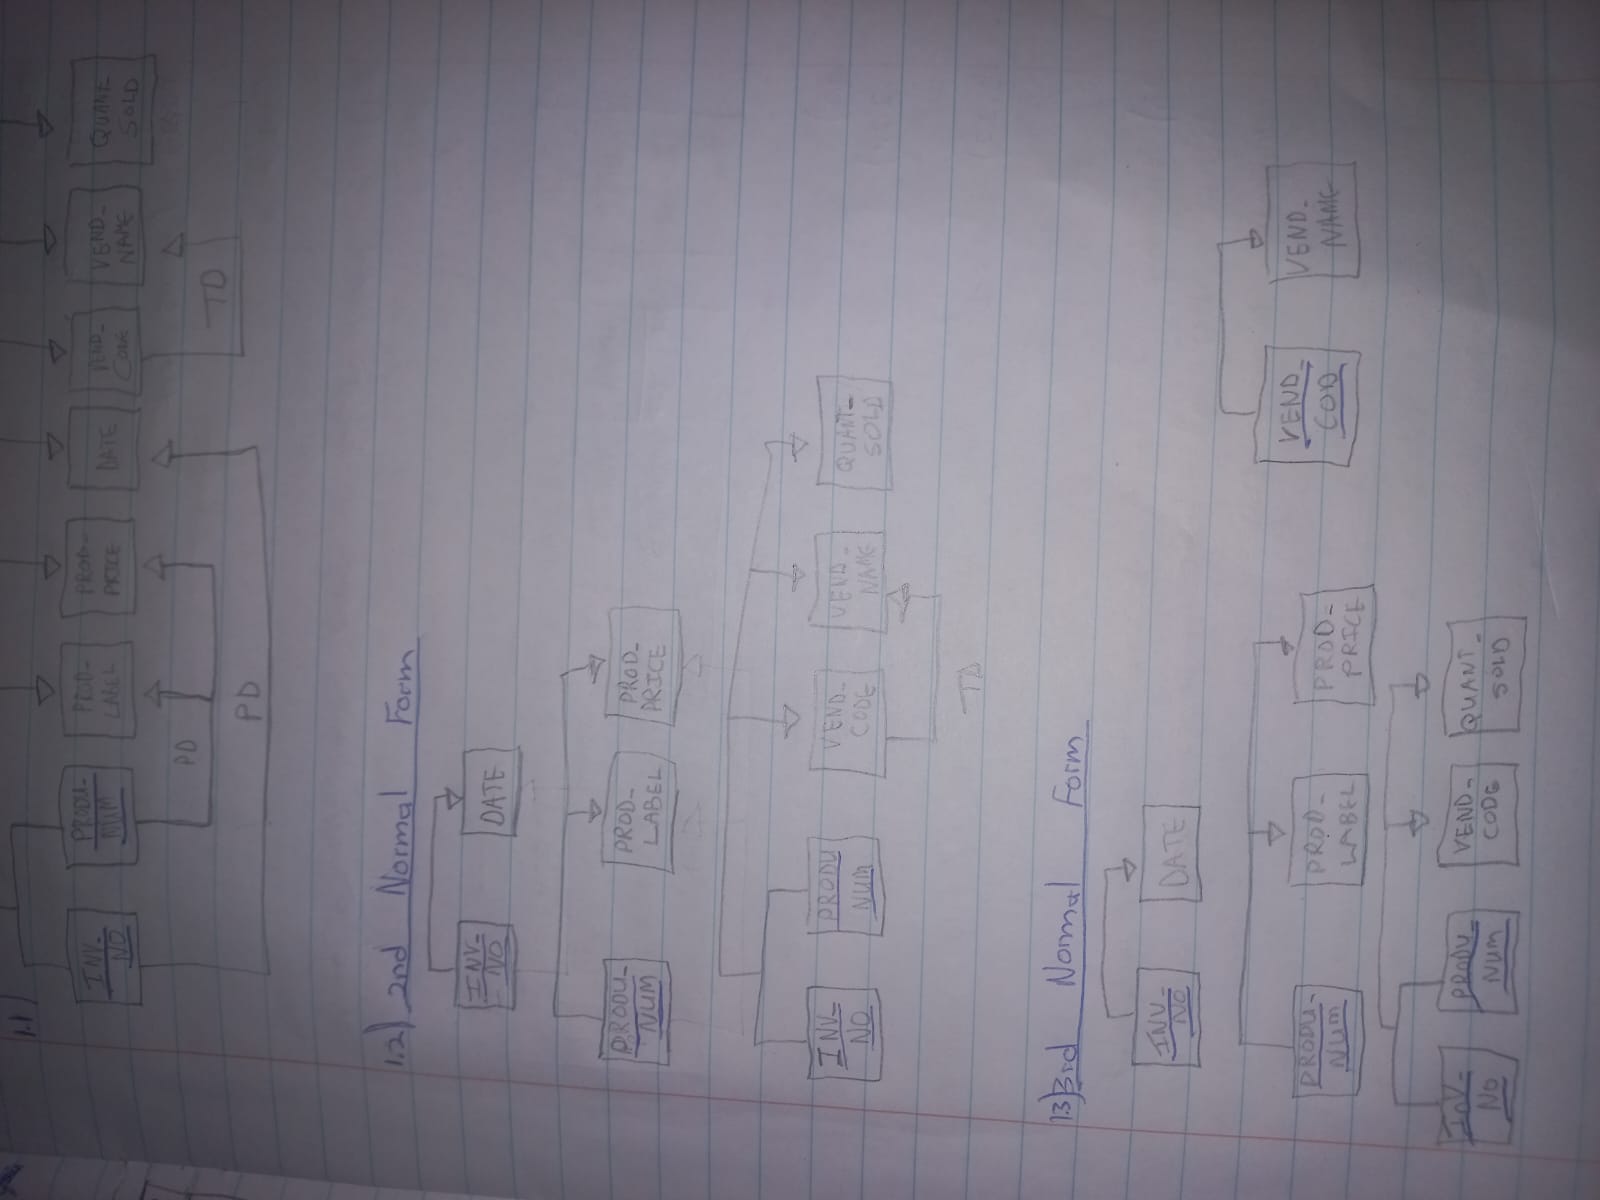 1.1)
INV_
NO
PRODU_
NUM
PROD_
LABEL
PROD_
PRICE
DATE
VEND_
CODE
VEND_
NAME
QUANT
SOLD
PD
TD
PD
1.2) 2nd Normal Form
INV_
NO
DATE
PRODU_
NUM
PROD_
LABEL
PROD_
PRICE
INV_
NO
PRODU
NUM
VEND_
CODE
VEND_
NAME
QUANT_
SOLD
TD
1.3) 3rd Normal Form
INV_
NO
DATE
PRODU_
NUM
PROD_
LABEL
PROD_
PRICE
VEND_
COD
VEND_
NAME
INV_
NO
PRODU_
NUM
VEND_
CODE
QUANT_
SOLD